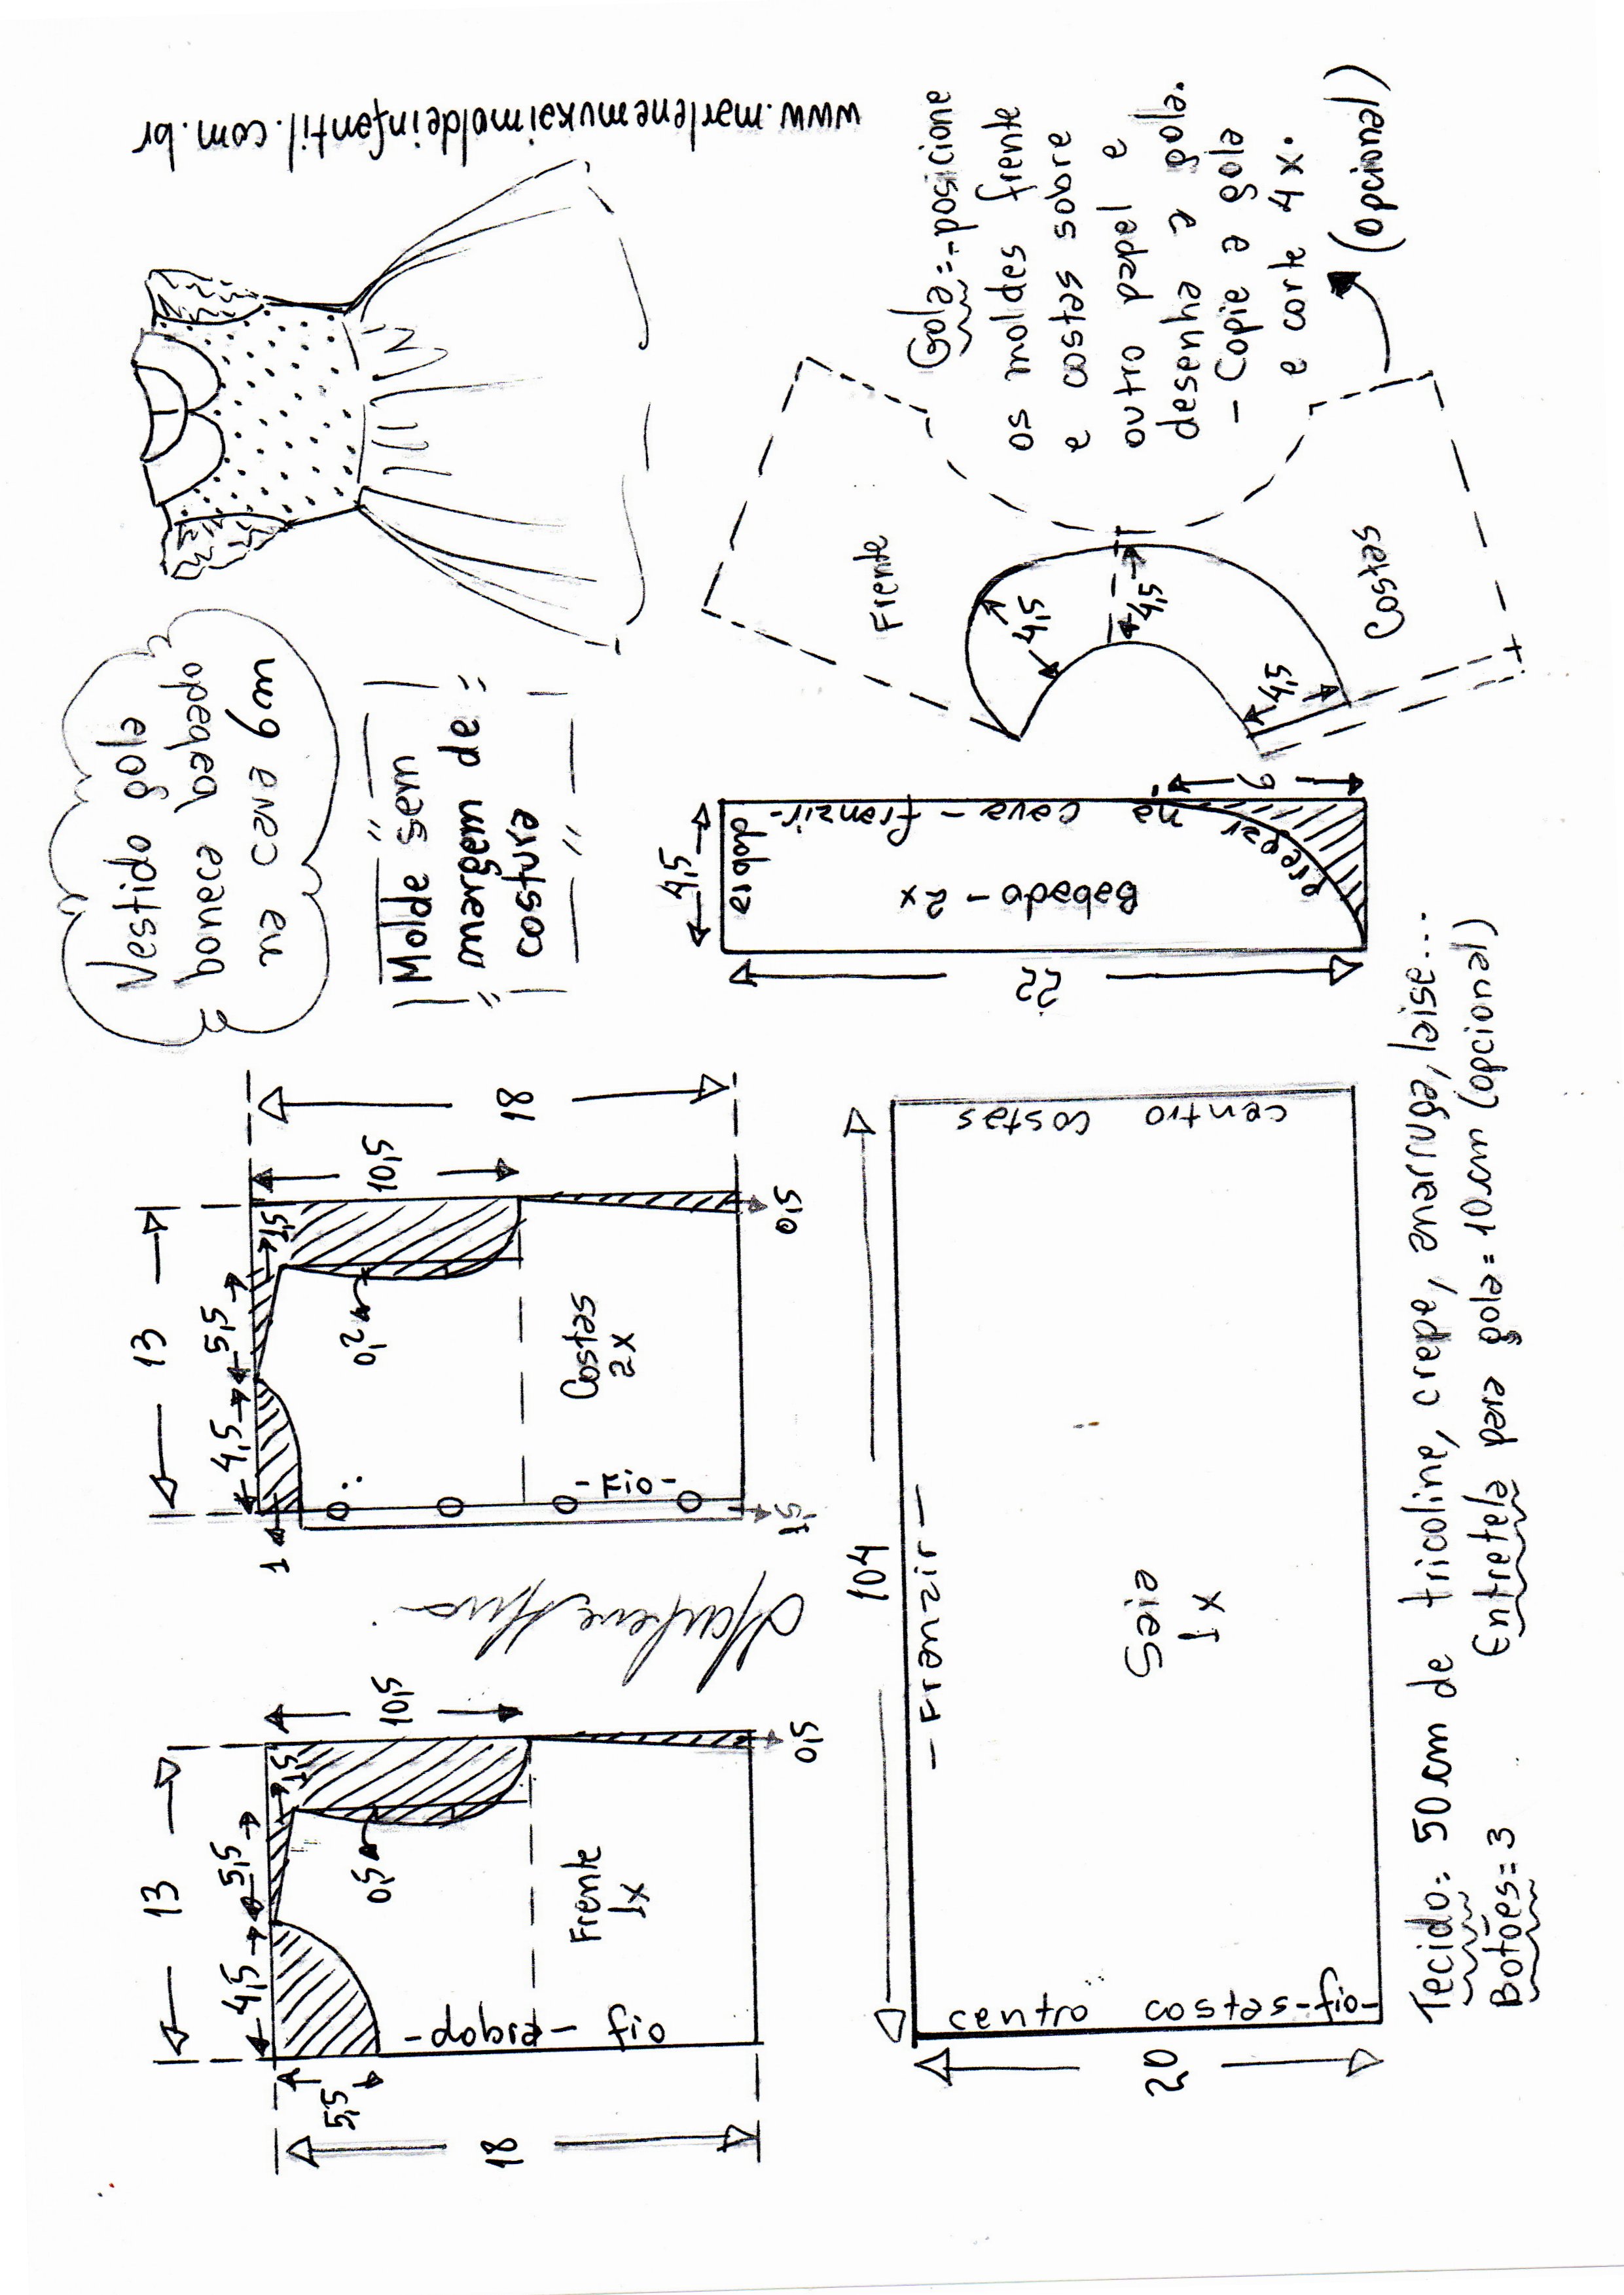 Vestido gola
boneca babado
na cava 6m
Molde sem
margem de
costura
www.marlenemukaimoldeinfantil.com.br
13
4,5
5,5
1,5
5,5
10,5
0,5
Frente
1x
-dobra- fio
0,5
18
13
4,5
5,5
1,5
1
10,5
0,2
Costas
2x
-Fio-
1,5
0,5
18
4,5
dobra
Babado - 2x
pregar na cava - franzir-
6
22
Gola=-posicione
os moldes frente
e costas sobre
outro papel e
desenha a gola.
- Copie a gola
e corte 4x.
(opcional)
Frente
4,5
4,5
4,5
Costas
104
-Franzir-
Saia
1x
centro costas-fio-
centro costas
20
Tecido: 50cm de tricoline, crepe, anarruga, laise...
Botões=3
Entretela para gola=10cm (opcional)